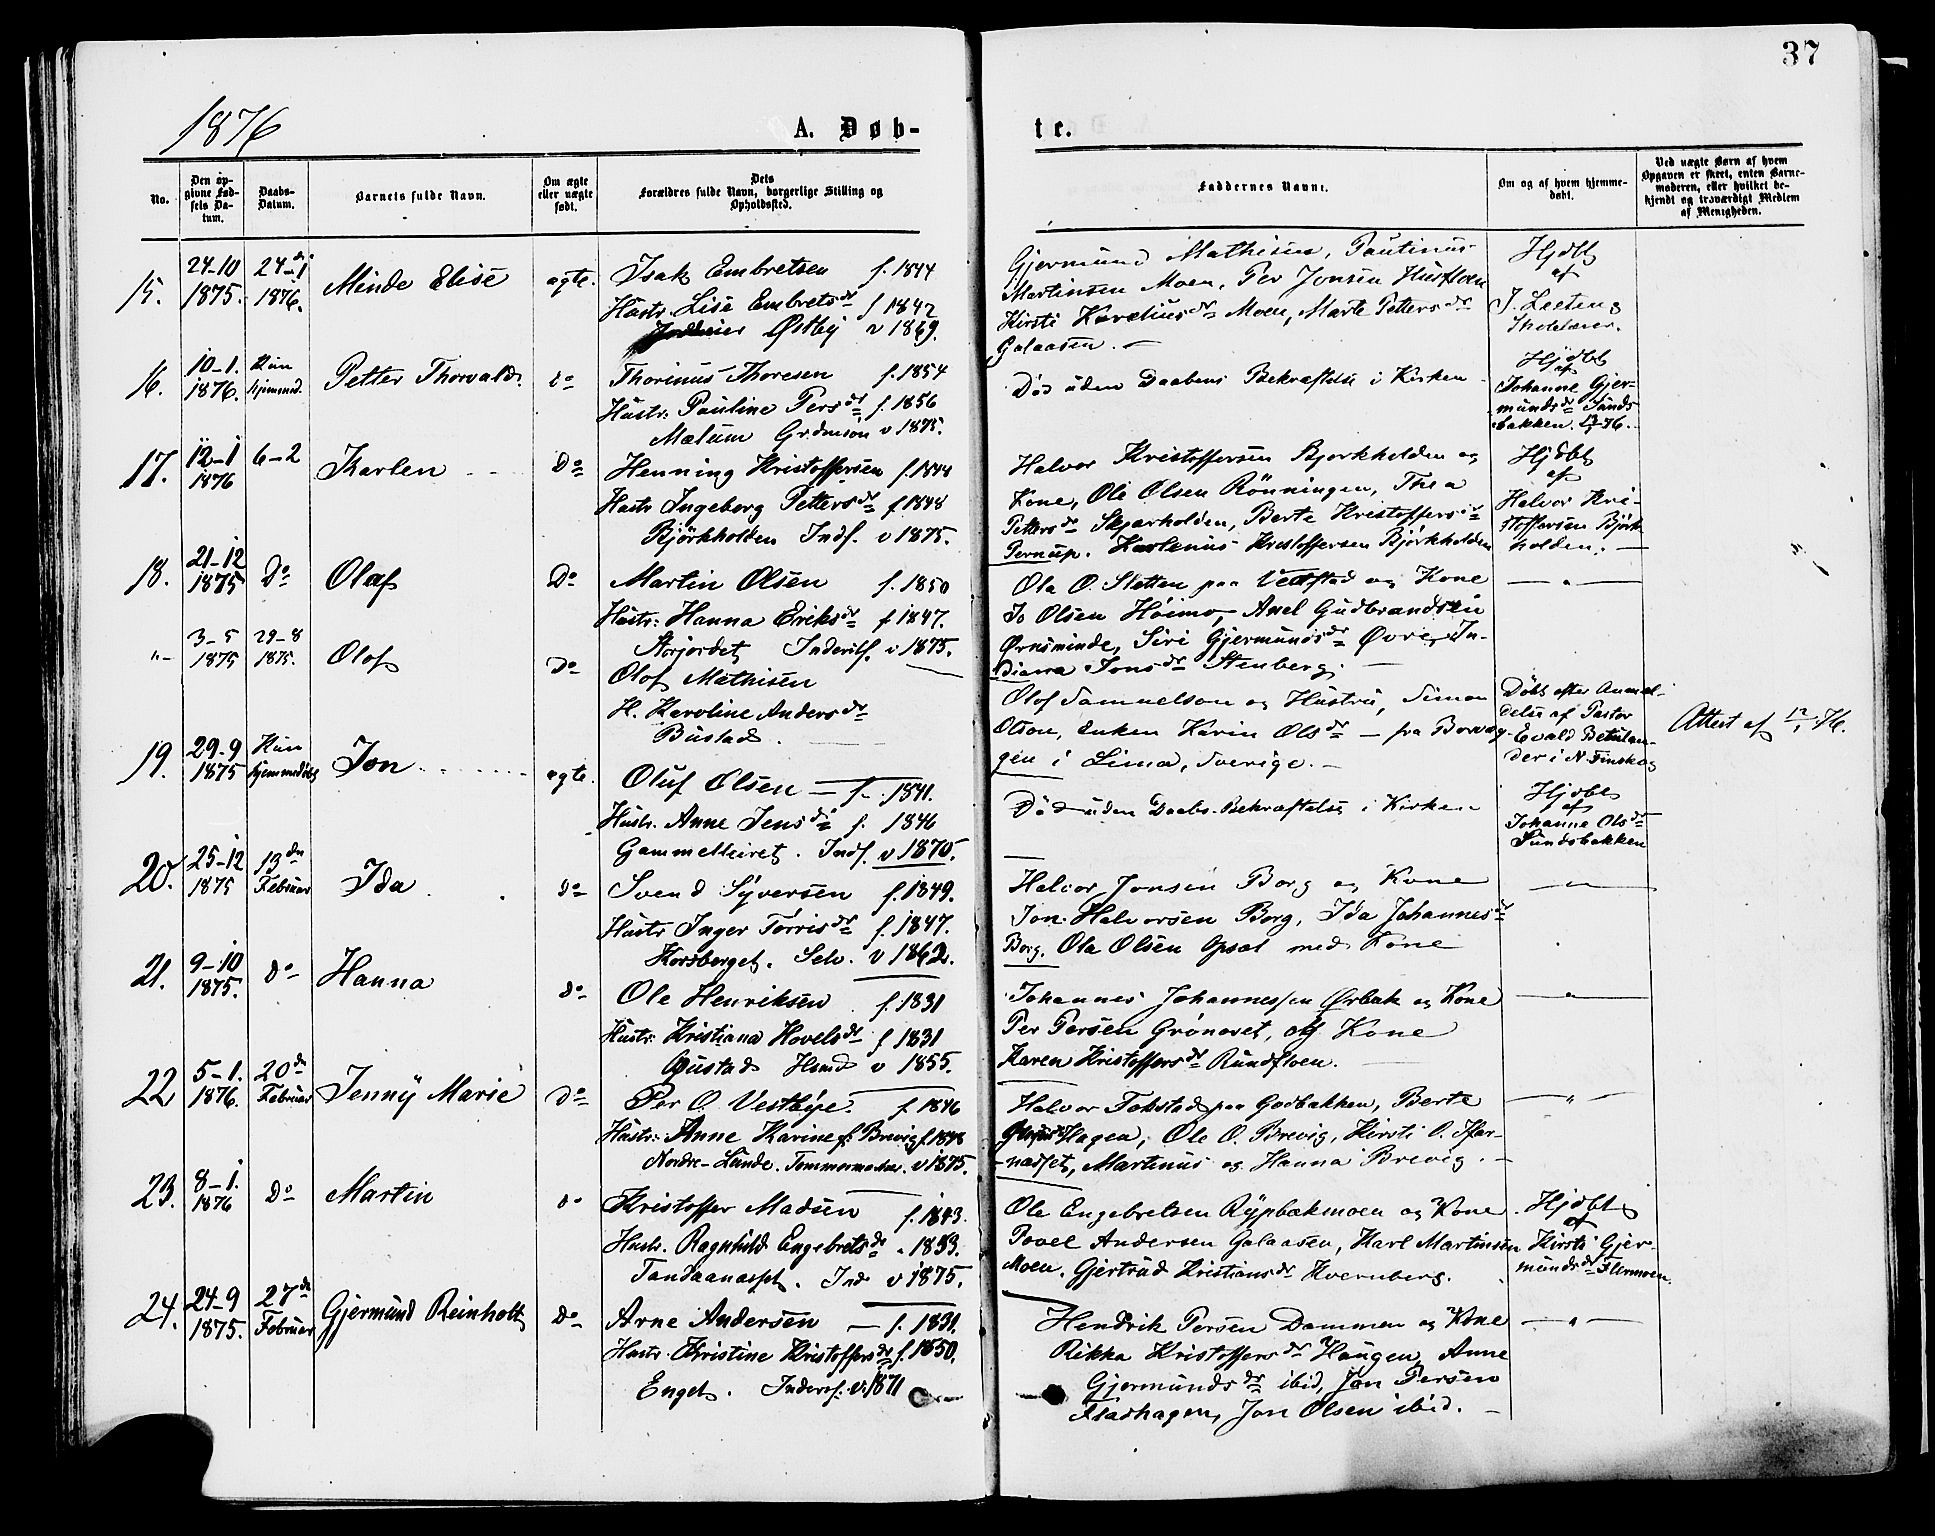 37
1876
A. Døb-
te.
No.
Den op-
givne Fød-
sels Da-
tum.
Daabs-
Datum.
Barnets fulde Navn.
Om ægte
eller uægte
født.
Dets
Forældres fulde Navn, borgerlige Stilling og
Opholdssted.
Faddernes Navne.
Om og af hvem hjemme-
døbt.
Ved uægte Børn af hvem
Opgaven er skeet, enten Barne-
moderen, eller hvilket be-
kjendt og troværdigt Medlem
af Menigheden.
15.
24-10
1875.
24-1
1876.
Minde Elise
ægte.
Isak Embretsen f. 1844
Hustr. Lise Embretsdr f 1842
Østby v 1869.
Gjermund Mathisen, Paulinus
Martinsen Moen, Per Jonsen
Kirsti Kareliusdr Moen, Marte Pettersdr
Galaasen. —
Hjdbt
af
16.
10-1.
1876.
Kun
hjemmed.
Petter Thorvald.
do
Thorinus Thoresen f. 1854
Hustr. Pauline Persdr f. 1856
Mælum Grdmsøn v 1875.
Død uden Daabens Bekræftelse i Kirken
Hjdbt
af
Johanne Gjer-
mundsdr Sunds-
bakken.
17.
12-1
1876
6-2
Karlen
Do
Henning Kristoffersen f. 1844
Hustr Ingeborg Pettersdr f 1848
Björkholden Indf. v 1875.
Halvor Kristoffersen Bjorkholden og
Kone, Ole Olsen Rönningen, Thea
Pettersdr Skjærholden, Berte Kristoffersdr
Pernup. Karlenus Kristoffersen Bjørkholden
Hjdbt
af
Halvor Kri-
stoffersen Bjørk-
holden. —
18.
21-12
1875
Do
Olaf
Do
Martin Olsen f. 1850
Hustr: Hanna Eriksdr f 1847.
Inderstf. v 1875.
Ola O. Sletten paa og Kone
Jo Olsen Høimo, Axel Gudbrandsen
Ørnsminde, Siri Gjermundsdr Øvre, In-
diana Jonsdr Stenberg. —
— " —
"-
3-5
1875
29-8
1875.
Olof
Do
Olof Mathisen
H. Karoline Andersdr
Bustad. —
Olof Samuelson og Hustru, Simon
Olson, Enken Karin Olsdr — fra
gen i Lima, Sverige. —
Døbt efter Anmel-
delse af Pastor
Evald Betulan-
der i N. Finskog
Attest af 12/1 76.
19.
29-9
1875
Kun
hjemmedøbt
Jon
ægte.
Oluf Olsen — f. 1841.
Hustr. Anne Jensdr f. 1846
Indf. v 1870.
Død uden Daabs-Bekræftelse i Kirken
Hjdbt
af
Johanne Olsdr
Sundsbakken
20.
25-12
1875
13de
Februar
Ida
do
Svend Syversen f. 1849.
Hustr Inger Torrisdr f. 1847.
Korsberget. Selv. v 1862.
Halvor Jonsen Borg og Kone
Jon Halvorsen Borg, Ida Johannesdr
Borg, Ola Olsen Opsal med Kone
— " —
21.
9-10
1875.
do
Hanna
do
Ole Henriksen f. 1831
Hustr. Kristiana Hovelsdr f 1831
Gustad v 1855.
Johannes Johannessen Ørbæk og Kone
Per Persen Grønæset, og Kone
Karen Kristoffersdr Rundfloen.
— " —
22
5-1.
1876.
20de
Februar
Jenny Marie
Do
Per O. Vestbye. f. 1846
Hustr: Anne Karine f. Brevig f. 1848
Nordre-Lunde. Tømmermerker. v 1875.
Halvor Tokstad paa Godbakken, Berte
Hagen, Ole O. Brevig, Kirsti O.
Martinus og Hanna Brevig. —
— " —
23.
8-1.
1876
Do
Martin
do
Kristoffer Madsen f. 1843.
Hustr. Ragnhild Engebretsdr " 1853.
Tandaanæsset. Ind v 1875.
Ole Engebretsen Rypbækmoen og Kone
Povel Andersen Galaasen, Karl Martinsen
Moen. Gjertrud Kristiansdr Kvernberg.
Hjdbt
af
Kirsti Gjer-
mundsdr Flermoen.
24.
24-9
1875.
27de
Februar
Gjermund Reinholt
Do
Arne Andersen — f. 1831.
Hustr. Kristine Kristoffersdr f. 1850.
Enget. Indersf. v. 1871
Hendrik Persen Dammen og Kone
Rikka Kristoffersdr Haugen, Anne
Gjermundsdr ibid, Jon Persen
Fladhagen, Jon Olsen ibid. —
— " —